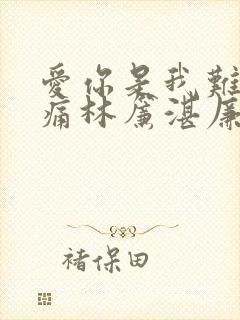 愛你是我難
痛林簾湛廉
褚保田